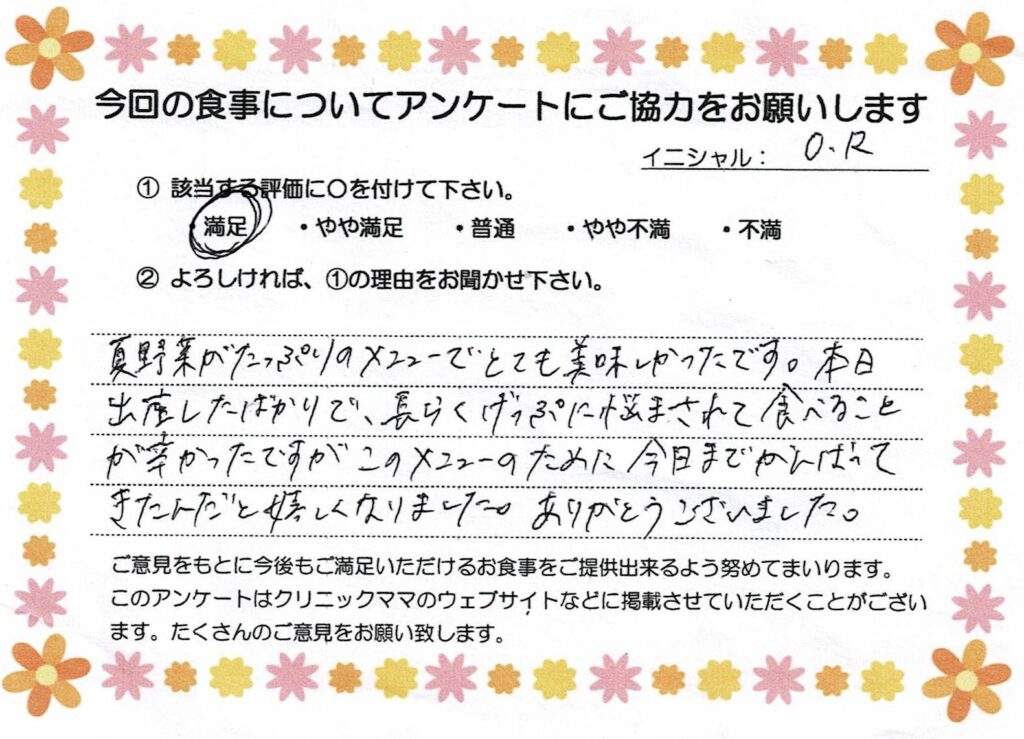 今回の食事についてアンケートにご協力をお願いします
イニシャル： O.R
① 該当する評価に〇を付けて下さい。
・満足 ・やや満足 ・普通 ・やや不満 ・不満
② よろしければ、①の理由をお聞かせ下さい。
夏野菜がたっぷりのメニューでとても美味しかったです。本日
出産したばかりで、長らくげっぷに悩まされて食べること
が辛かったですがこのメニューのために今日までがんばって
きたんだと嬉しくなりました。ありがとうございました。
ご意見をもとに今後もご満足いただけるお食事をご提供出来るよう努めてまいります。
このアンケートはクリニックママのウェブサイトなどに掲載させていただくことがござい
ます。たくさんのご意見をお願い致します。